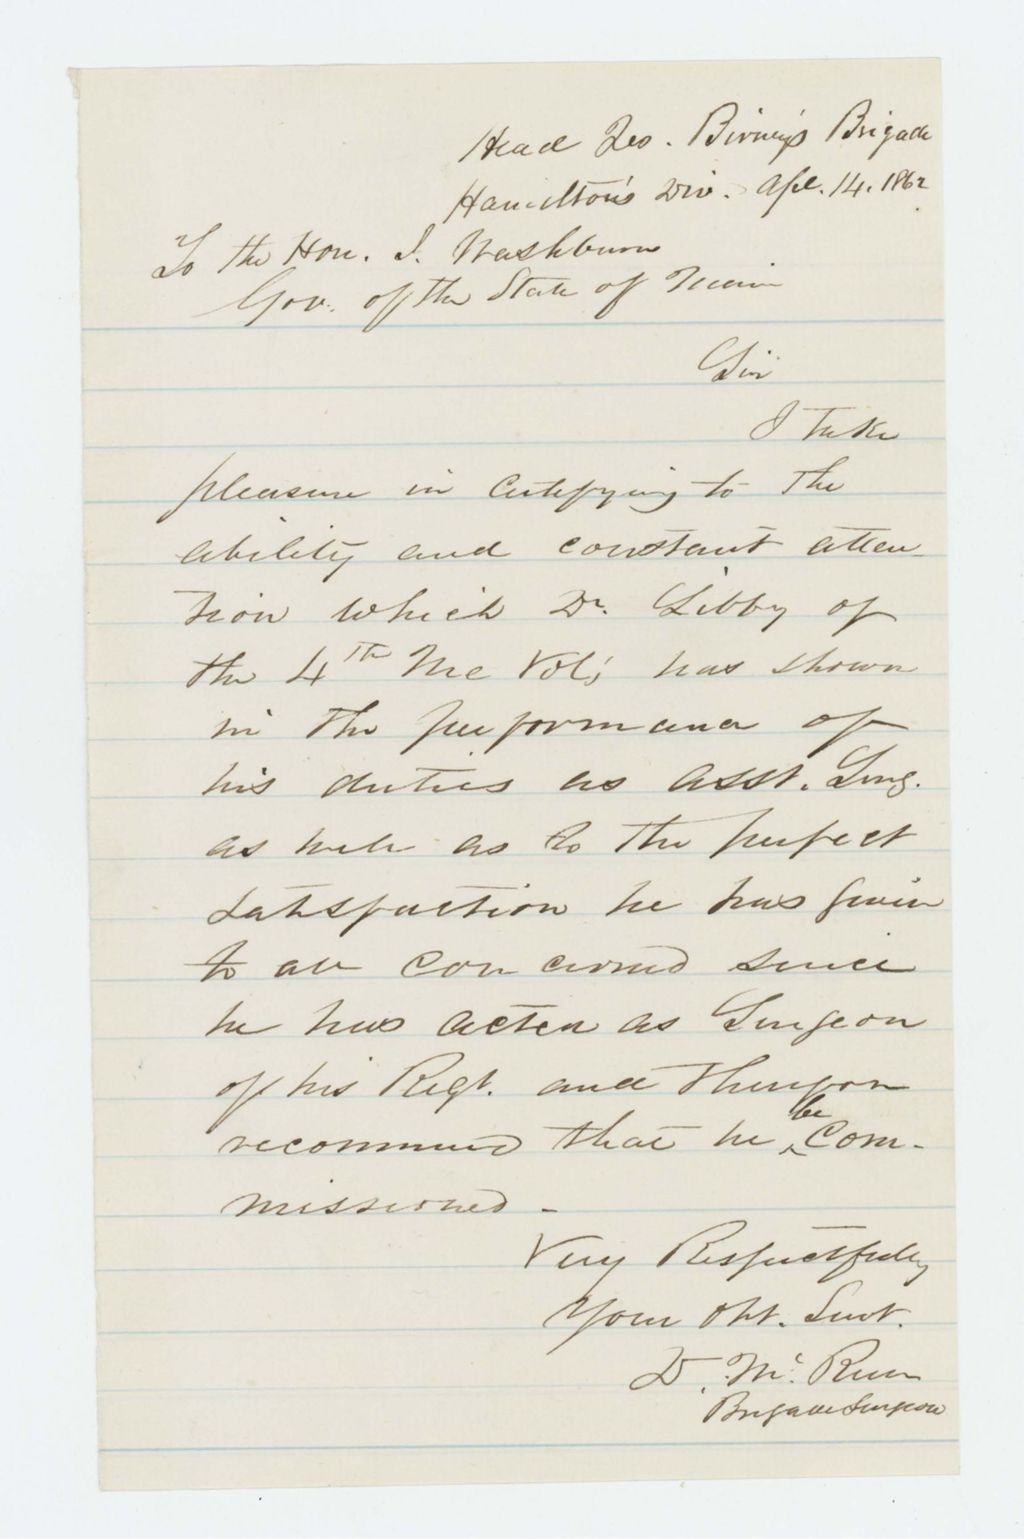 Head Qrs. Birney's Brigade
Hamilton's Div. Apl. 14. 1862
To the Hon. I. Washburn
Gov. of the State of Maine
Sir
I take
pleasure in certifying to the
ability and constant atten
tion which Dr. Libby of
the 4th Me Vols has shown
in the performance of
his duties as asst. Surg.
as well as to the perfect
satisfaction he has given
to all concerned since
he has acted as Surgeon
of his Regt. and
recommend that he be com-
missioned -
Very Respectfully
Your Obt. Servt.
D. Mc.
Brigade Surgeon